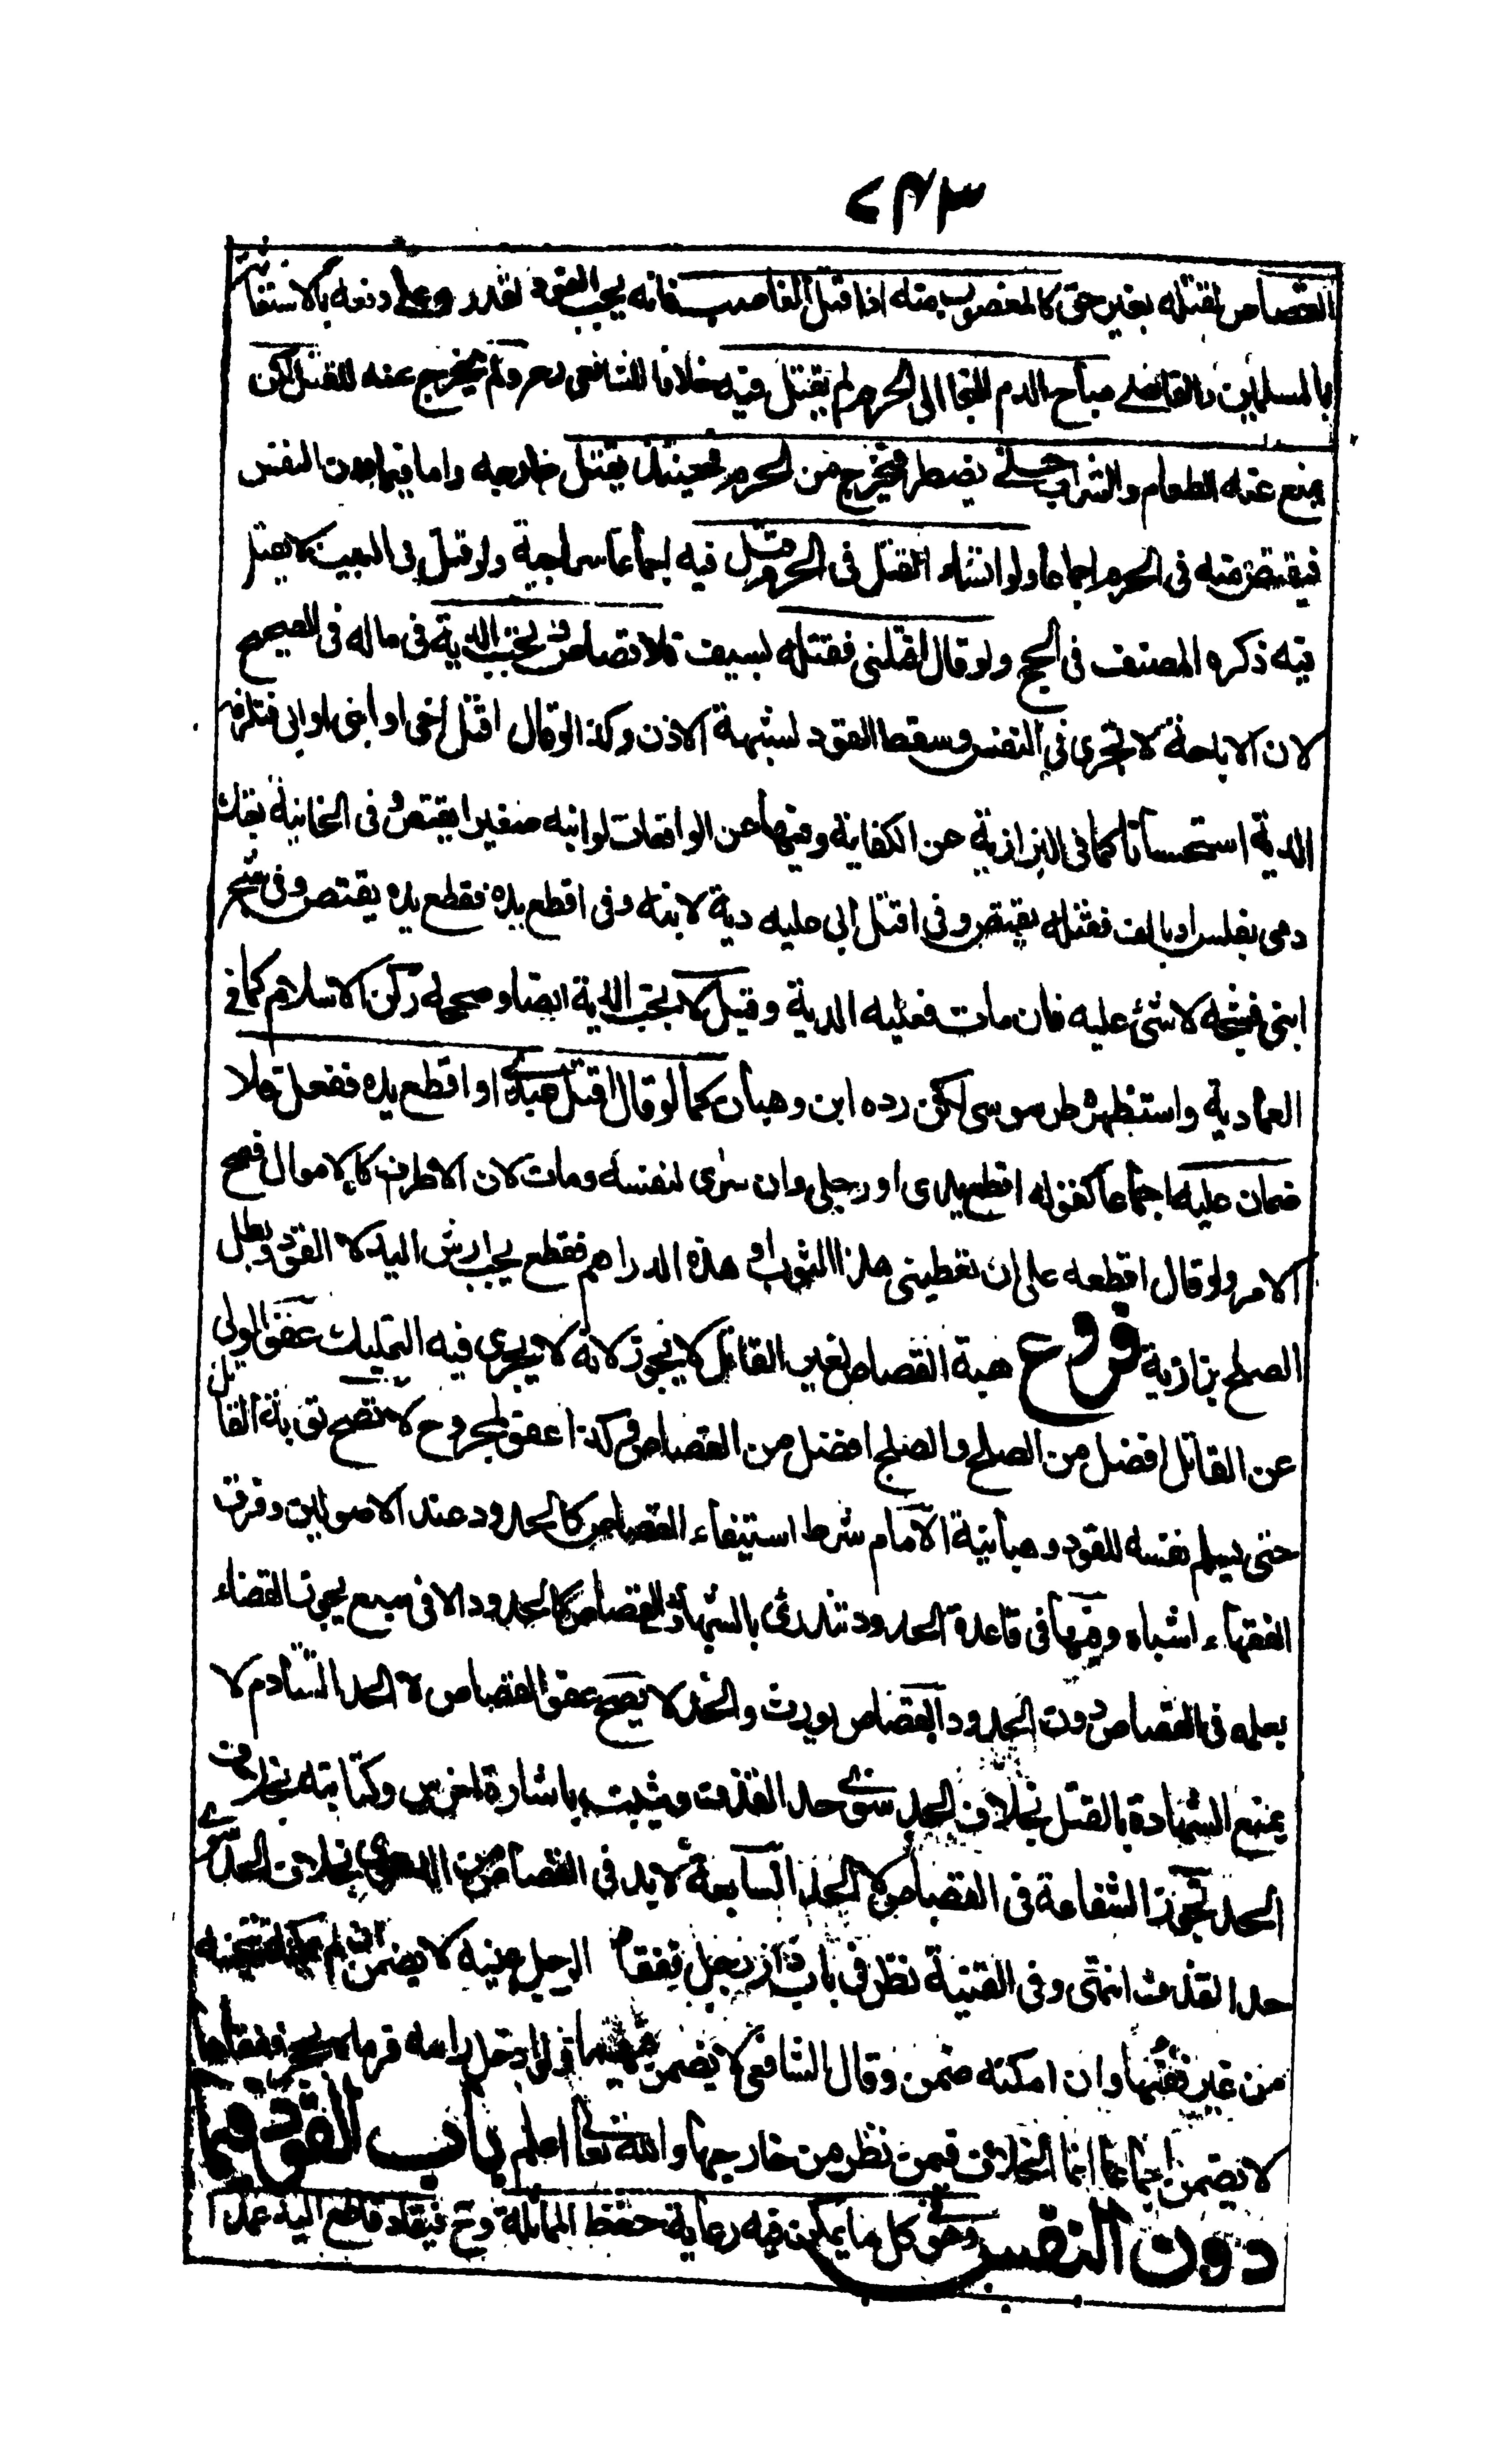 ٢٤٣
القصاص لقتله بغير حق كالمغصوب منه اذا قتل الغاصب فانه يجب القود لقدرته على دفعه بالاستغاثة
بالمسلمين والقاضى مباح الدم التجا الى الحرم لم يقتل فيه خلافا للشافعى رحمه ولم يخرج عنه للقتل لكن
يمنع عنه الطعام والشراب حتى يضطر فيخرج من الحرم فحينئذ يقتل خارجه واما فيما دون النفس
فيقتص منه فى الحرم اجماعا ولو انشاء القتل فى الحرم قتل فيه اجماعا سراجية ولو قتل فى البيت لا يقتل
فيه ذكره المصنف فى الحج ولو قال اقتلنى فقتله بسيف فلا قصاص وتجب الدية فى ماله فى الصحيح
لان الاباحة لا تجرى فى النفس وسقط القود لشبهة الاذن وكذا لو قال اقتل اخى او ابنى او ابى فتلزمه
الدية استحسانا كما فى البزازية عن الكفاية وفيها عن الواقعات لو ابنه صغيرا يقتص وفى الخانية بعتك
دمى بفلس او بالف فقتله يقتص وفى اقتل ابى عليه دية لابنه وفى اقطع يده فقطع يده يقتص وفى شج
ابنى فشجه لا شئ عليه فان مات فعليه الدية وقيل لا تجب الدية ايضا وصححه ركن الاسلام كما فى
العمادية واستظهره طرسوسى لكن رده ابن وهبان كما لو قال اقتل عبدى او اقطع يده ففعل فلا
ضمان عليه اجماعا كقوله اقطع يدى او رجلى وان سرى لنفسه ومات لان الاطراف كالاموال فصح
الامر ولو قال اقطعه على ان تعطينى هذا الثوب او هذه الدراهم فقطع يجب ارش اليد لا القود وبطل
الصلح بزازية فروع هبة القصاص لغير القاتل لا يجوز لانه لا يجرى فيه التمليك عفو الولى
عن القاتل افضل من الصلح والصلح افضل من القصاص وكذا عفو المجروح لا تصح توبة القاتل
حتى يسلم نفسه للقود وهبانية الامام شرط استيفاء القصاص كالحدود عند الاصوليين وفرق
الفقهاء اشباه وفيها فى قاعدة الحدود تندرئ بالشبهات القصاص كالحدود الا فى سبع يجوز القضاء
بعلمه فى القصاص دون الحدود القصاص يورث والحد لا يصح عفو القصاص لا الحد التقادم لا
يمنع الشهادة بالقتل بخلاف الحد سوى حد القذف ويثبت باشارة اخرس وكتابته بخلاف
الحد تجوز الشفاعة فى القصاص لا الحد السابعة لا بد فى القصاص من الدعوى بخلاف الحد سوى
حد القذف انتهى وفى القنية نظر فى باب دار رجل ففقأ الرجل عينه لا يضمن ان لم يمكنه تنحيته
من غير فقئها وان امكنه ضمن وقال الشافعى لا يضمن فيهما ولو ادخل راسه فرماه بحجر ففقأها
لا يضمن اجماعا انما الخلاف فيمن نظر من خارجها والله تعالى اعلم باب القود فيما
دون النفس وهو فى كل ما يمكن فيه رعاية حفظ المماثلة وح فيقاد قاطع اليد عمدا